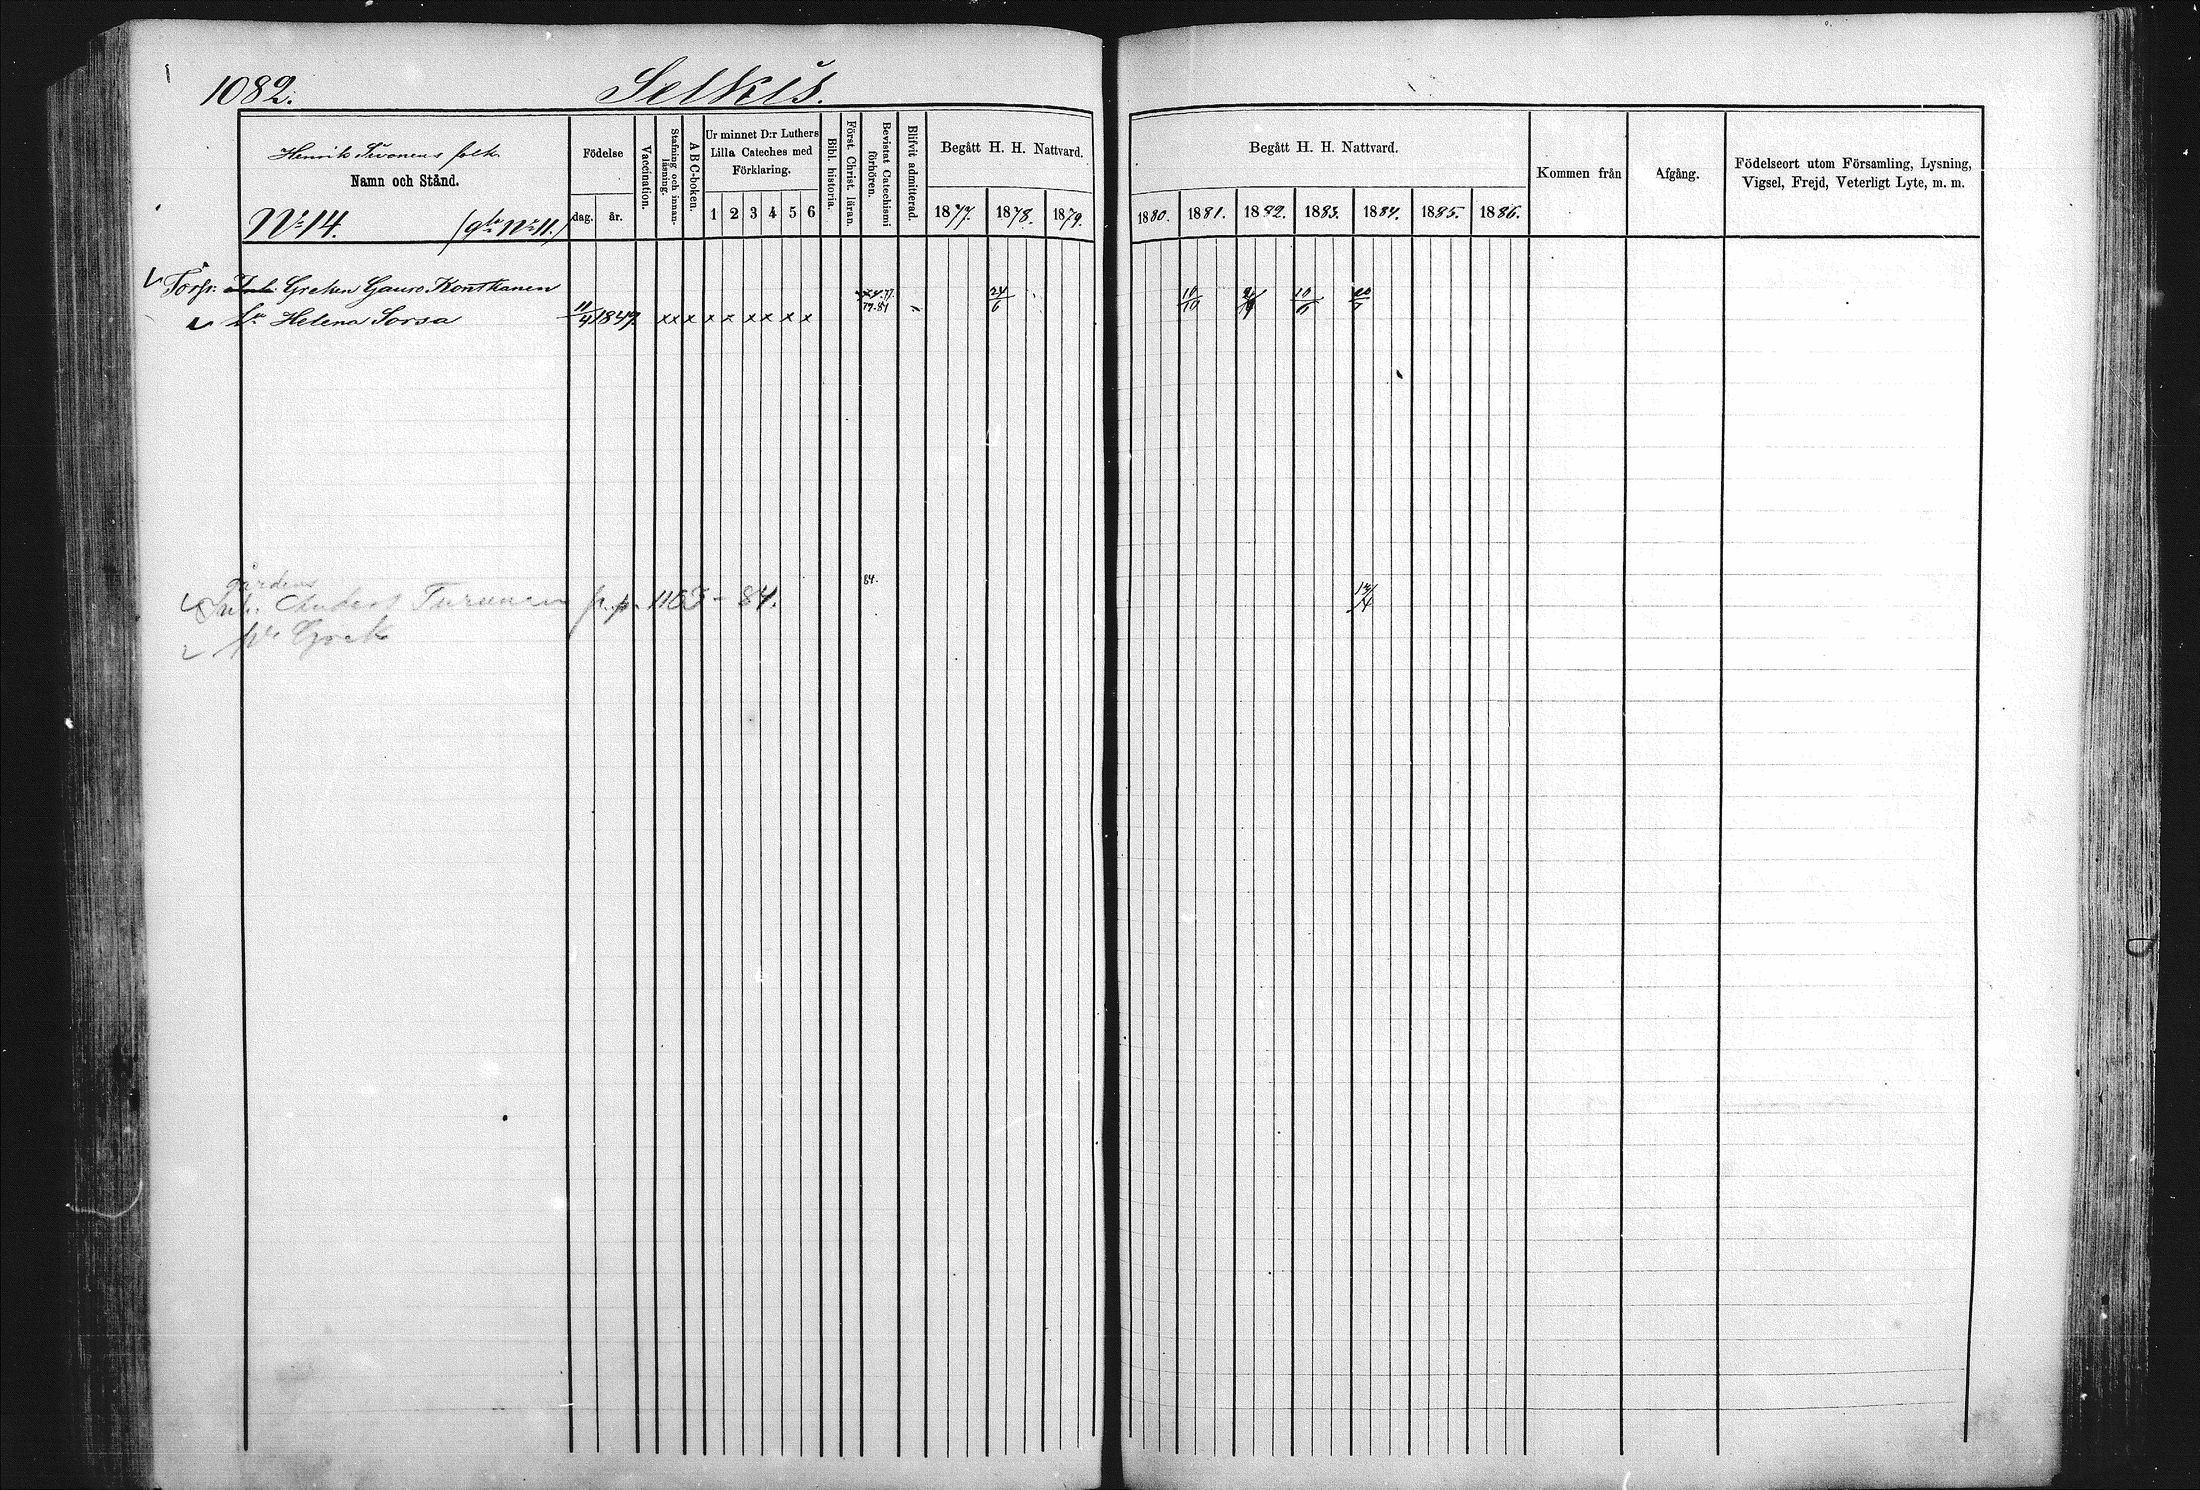 1082. Selkis.
Henrik Sivonens folk.
Namn och Stånd.
No 14. (gla No 11.)
Födelse
dag. år.
Vaccination.
Stafning och innan-
läsning.
A B C-boken.
Ur minnet D:r Luthers
Lilla Cateches med
Förklaring.
1 2 3 4 5 6
Bibl. historia.
Först. Christ. läran.
Bevistat Catechismi
förhören.
Blifvit admitterad.
Begått H. H. Nattvard.
1877. 1878. 1879.
Begått H. H. Nattvard.
1880. 1881. 1882. 1883. 1884. 1885. 1886.
Kommen från
Afgång.
Födelseort utom Församling, Lysning,
Vigsel, Frejd, Veterligt Lyte, m. m.
Torp. Inh. Greken Gauro Konttanen
Hu Helena Sorsa 11/4 1847. x x x x x x x x x 77. 79. 84 24/6 10/10 10/6
gårdens
Inh. Anders Turunen p. p. 1163 - 84. 84. 13/4
Hu Grek